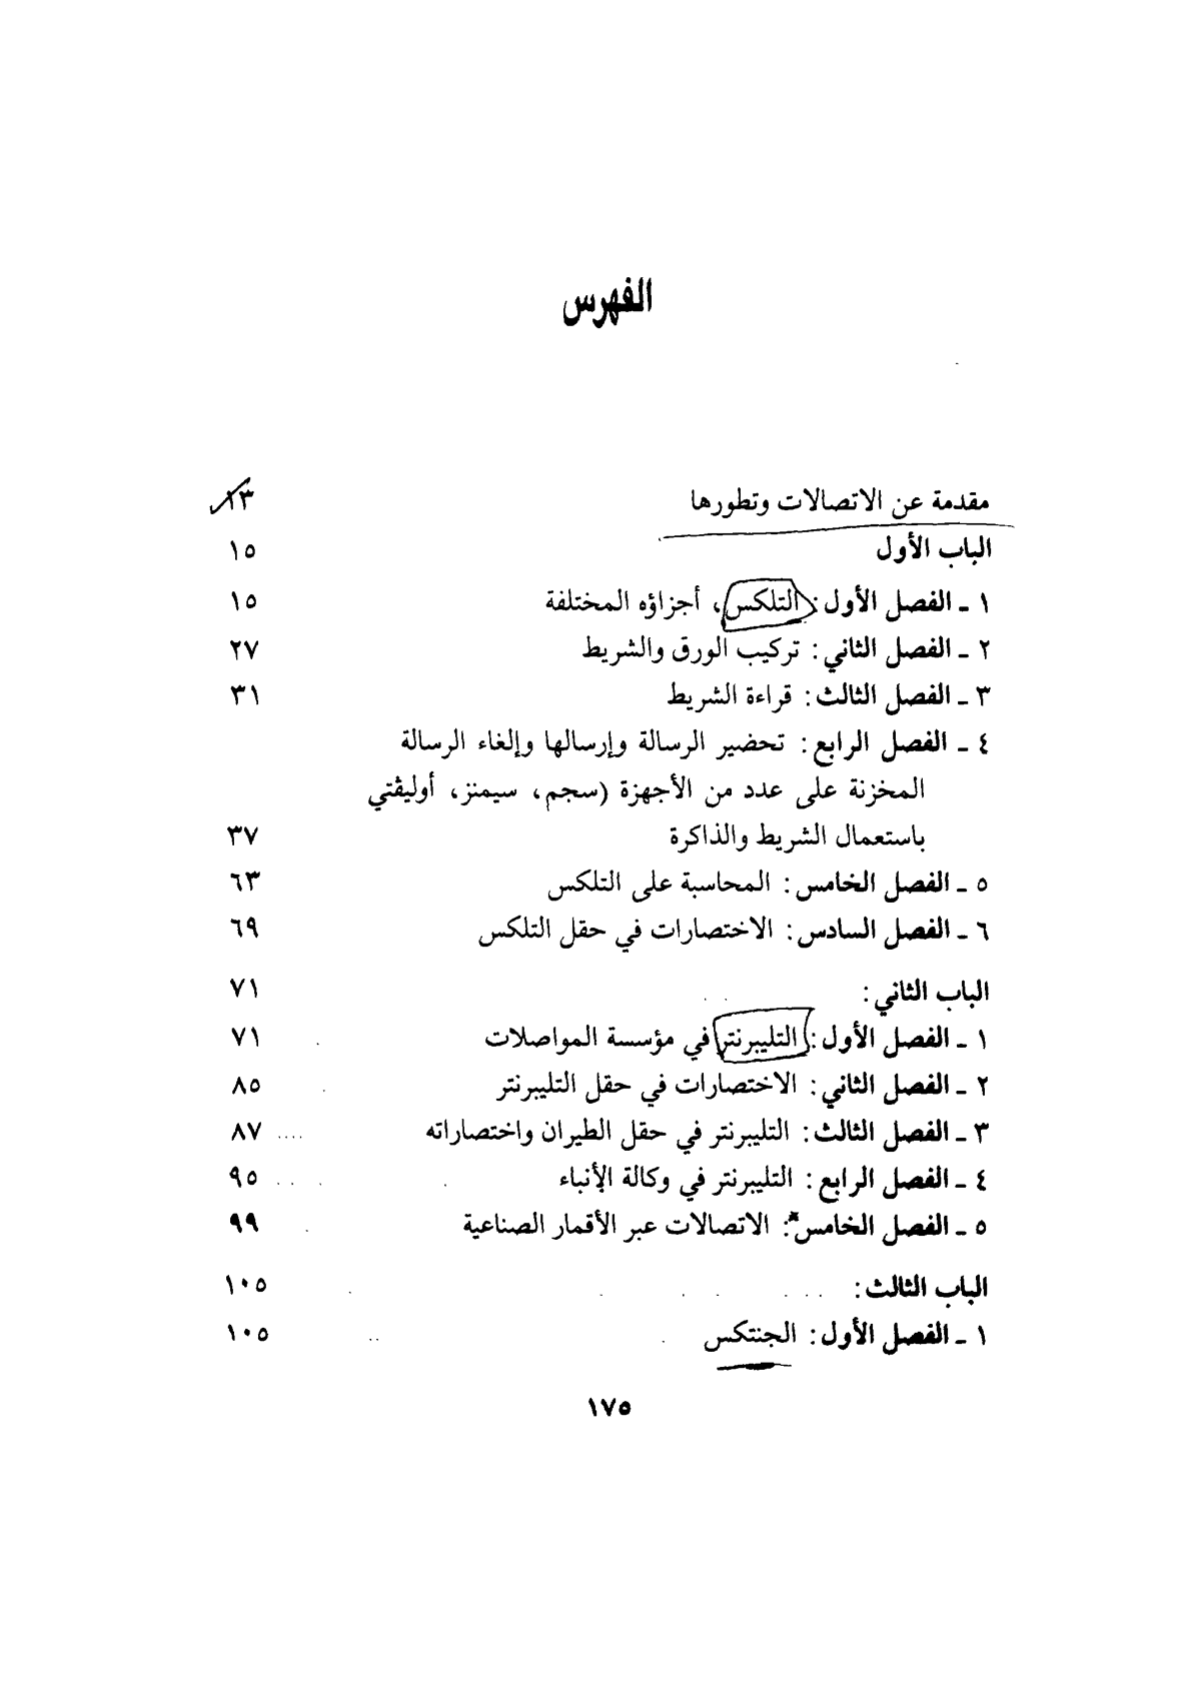 الفهرس
مقدمة عن الاتصالات وتطورها ١٣
الباب الأول ١٥
١ ـ الفصل الأول: التلكس، أجزاؤه المختلفة ١٥
٢ ـ الفصل الثاني: تركيب الورق والشريط ٢٧
٣ ـ الفصل الثالث: قراءة الشريط ٣١
٤ ـ الفصل الرابع: تحضير الرسالة وإرسالها وإلغاء الرسالة
المخزنة على عدد من الأجهزة (سجم، سيمنز، أوليڤتي
باستعمال الشريط والذاكرة ٣٧
٥ ـ الفصل الخامس: المحاسبة على التلكس ٦٣
٦ ـ الفصل السادس: الاختصارات في حقل التلكس ٦٩
الباب الثاني: ٧١
١ ـ الفصل الأول: التليبرنتر في مؤسسة المواصلات ٧١
٢ ـ الفصل الثاني: الاختصارات في حقل التليبرنتر ٨٥
٣ ـ الفصل الثالث: التليبرنتر في حقل الطيران واختصاراته .... ٨٧
٤ ـ الفصل الرابع: التليبرنتر في وكالة الأنباء ٩٥
٥ ـ الفصل الخامس: الاتصالات عبر الأقمار الصناعية ٩٩
الباب الثالث: ١٠٥
١ ـ الفصل الأول: الجنتكس ١٠٥
١٧٥